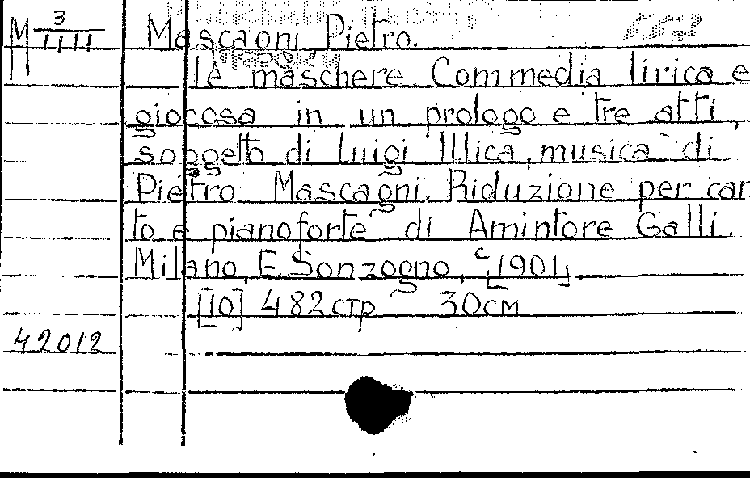 M 3/1111
Mascagni, Pietro.
Le maschere Commedia lirica e
giocosa in un prologo e tre atti,
soggetto di Luigi Illica, musica di
Pietro Mascagni. Riduzione per can
to e pianoforte di Amintore Galli.
Milano, E. Sonzogno, c[1901]
[10] 482 стр 30см
42012